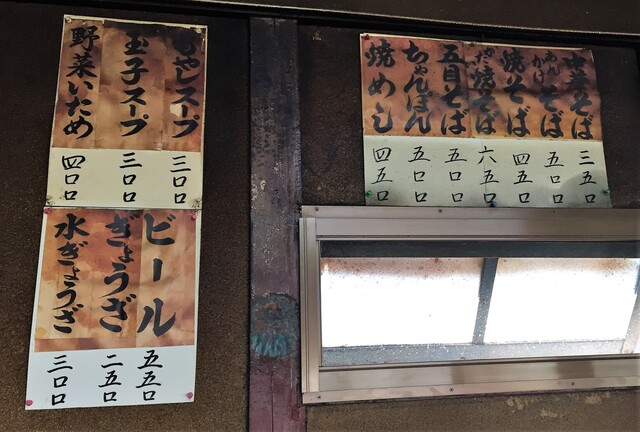 もやしスープ 三〇〇
玉子スープ 三〇〇
野菜いため 四〇〇
ビール 五五〇
ぎょうざ 二五〇
水ぎょうざ 三〇〇
中華そば 三五〇
あんかけそば 五五〇
焼そば 四五〇
かた焼そば 六五〇
五目そば 五五〇
ちゃんぽん 五五〇
焼めし 四五〇